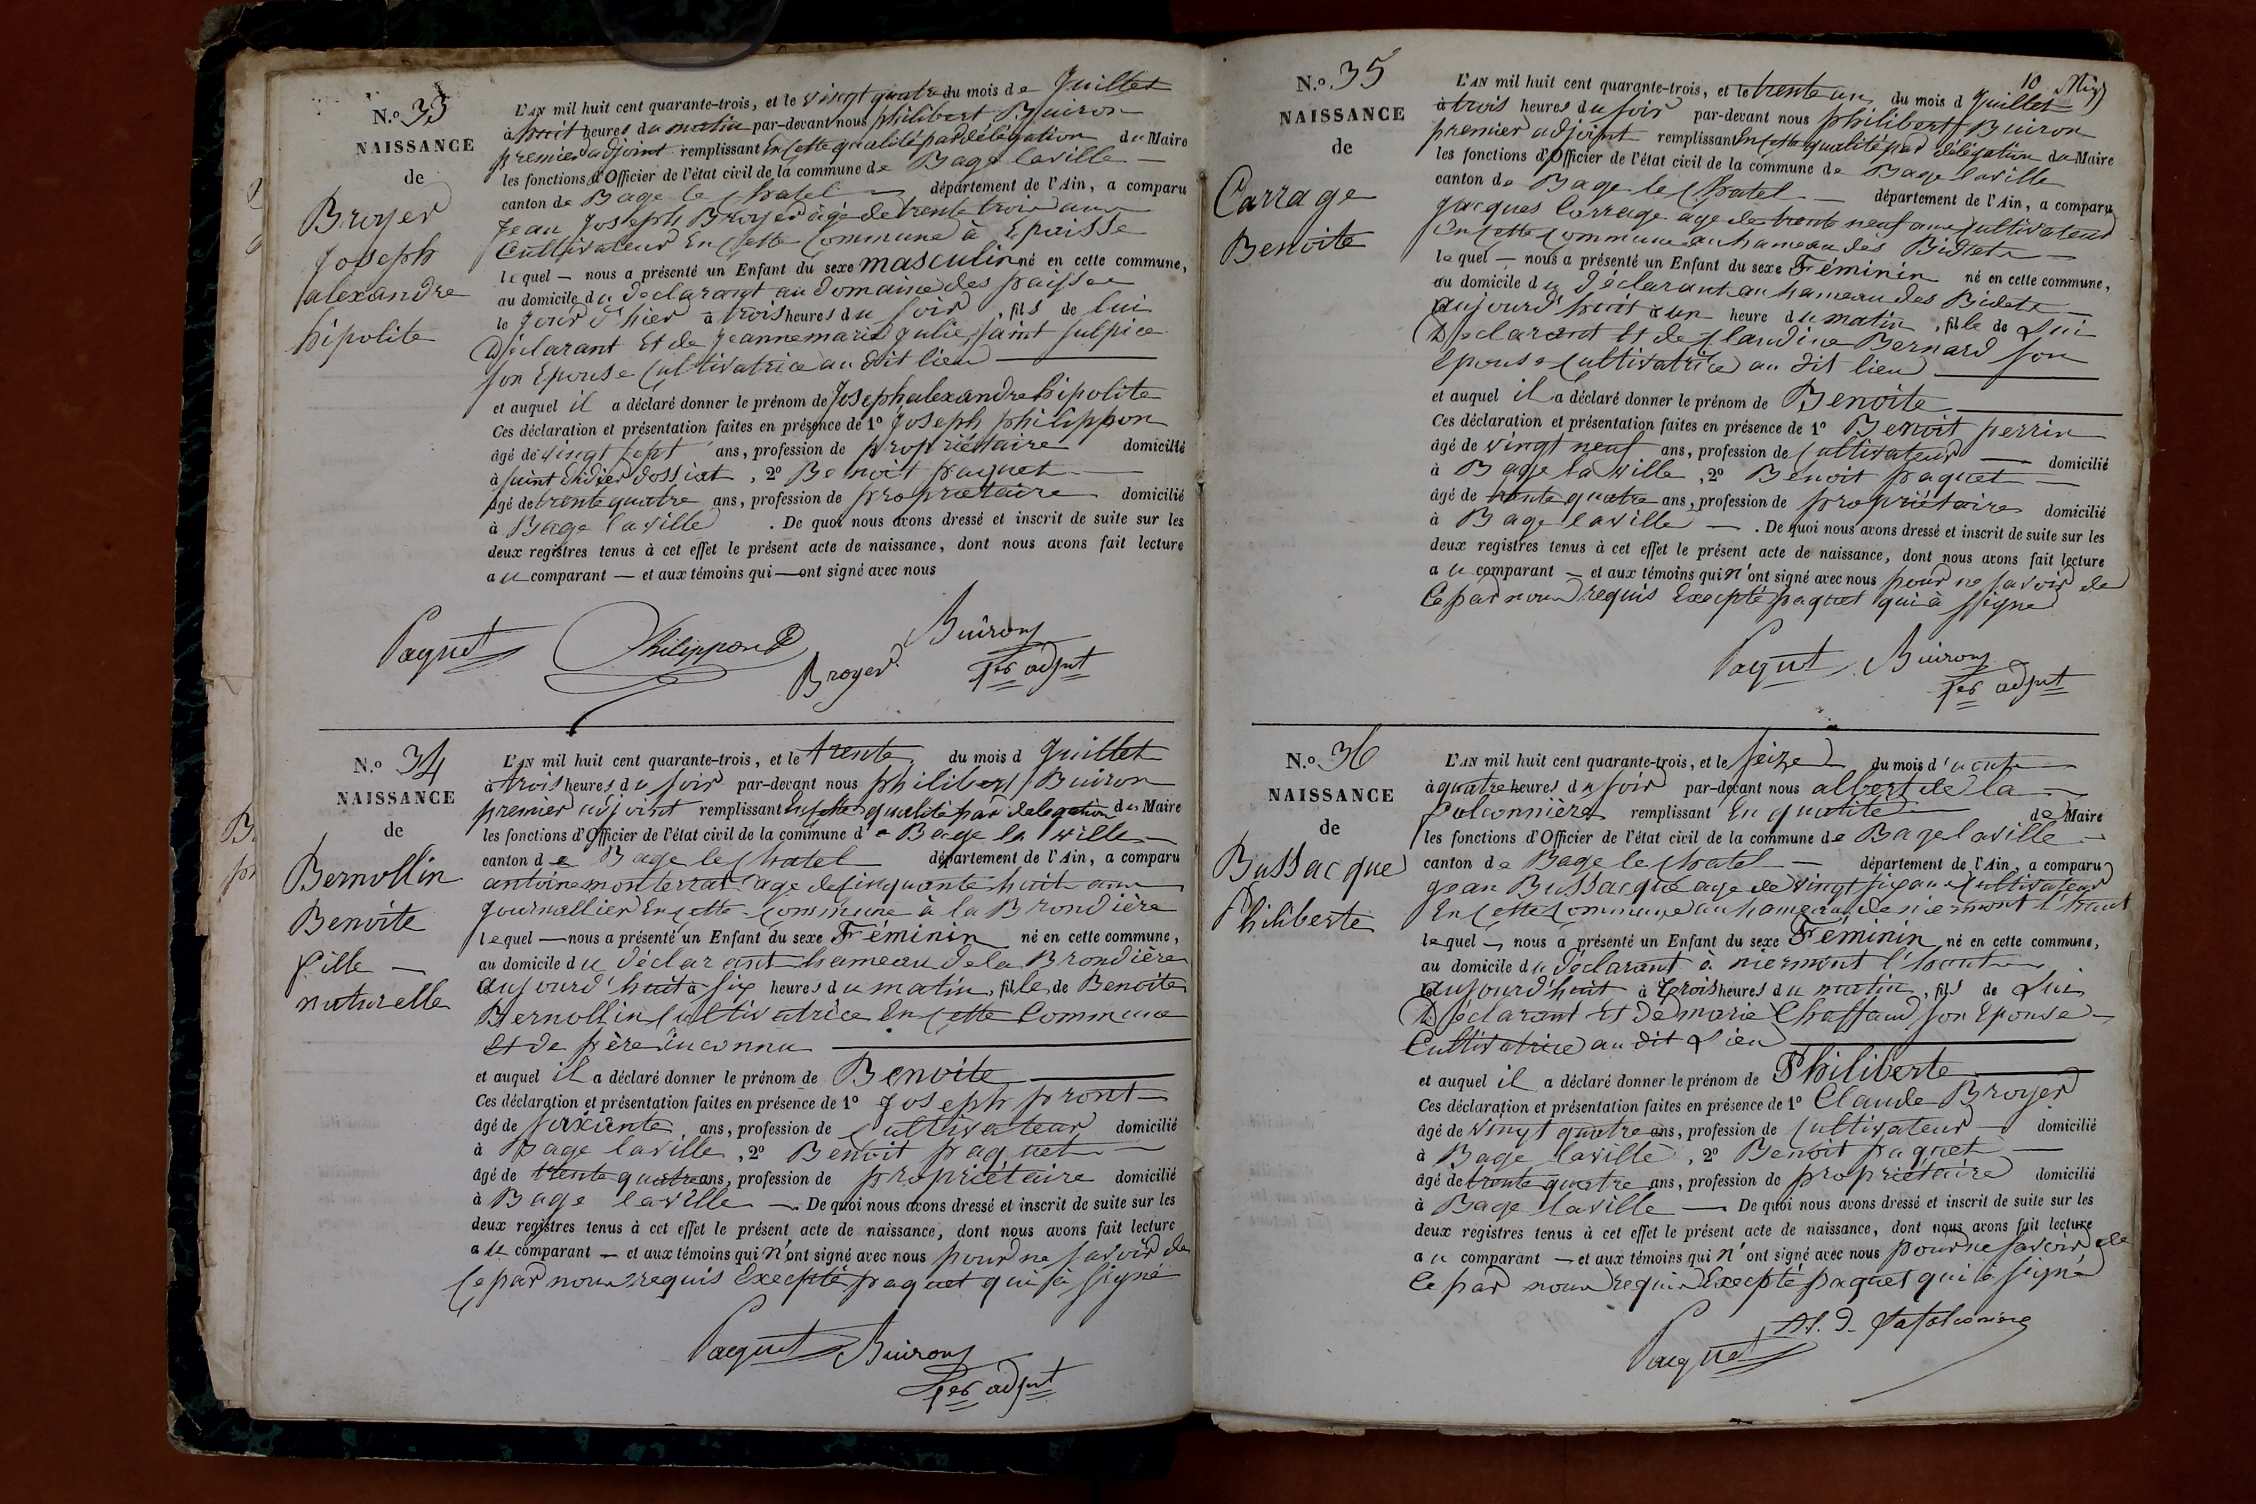 N.o 33
NAISSANCE
de
Broyer
Joseph
alexandre
hipolite
L'AN mil huit cent quarante-trois, et le vingt quatre du mois de Juillet
à huit heures du matin par-devant nous philibert Buiron
premier adjoint remplissant En Cette qualité par délégation du Maire
les fonctions d'Officier de l'état civil de la commune de Bage laville
canton de Bage le Chatel département de l'Ain, a comparu
Jean Joseph Broyer âgé de trente trois ans
Cultivateur En Cette Commune à Epaisse
lequel nous a présenté un Enfant du sexe masculin né en cette commune,
au domicile du déclarant au domaine des paisse
le Jour d'hier à trois heures du soir, fils de lui
Déclarant Et de Jeanne marie Julie saint sulpice
son Epouse Cultivatrice au dit lieu
et auquel il a déclaré donner le prénom de Joseph alexandre hipolite
Ces déclaration et présentation faites en présence de 1º Joseph philippon
âgé de vingt sept ans, profession de propriétaire domicilié
à saint didier dossiat, 2º Benoit paquet
âgé de trente quatre ans, profession de propriétaire domicilié
à Bage laville. De quoi nous avons dressé et inscrit de suite sur les
deux registres tenus à cet effet le présent acte de naissance, dont nous avons fait lecture
au comparant et aux témoins qui ont signé avec nous
Paquet Philippon Broyer Buiron
1er adjnt
N.o 34
NAISSANCE
de
Bernollin
Benoite
fille
naturelle
L'AN mil huit cent quarante-trois, et le trente du mois d Juillet
à trois heures du soir par-devant nous philibert Buiron
premier adjoint remplissant En Cette qualité par délégation du Maire
les fonctions d'Officier de l'état civil de la commune de Bage la ville
canton de Bage le Chatel département de l'Ain, a comparu
antoine monterrat age de Cinquante huit ans
Journallier En Cette Commune à la Brondière
lequel nous a présenté un Enfant du sexe Féminin né en cette commune,
au domicile du déclarant hameau de la Brondière
aujourd'huit à six heures du matin, fille de Benoite
Bernollin Cultivatrice En Cette Commune
Et de père inconnu
et auquel il a déclaré donner le prénom de Benoite
Ces déclaration et présentation faites en présence de 1º Joseph pront
âgé de soixante ans, profession de Cultivateur domicilié
à Bage laville, 2º Benoit paquet
âgé de trente quatre ans, profession de propriétaire domicilié
à Bage laville. De quoi nous avons dressé et inscrit de suite sur les
deux registres tenus à cet effet le présent acte de naissance, dont nous avons fait lecture
au comparant et aux témoins qui n'ont signé avec nous pour ne savoir de
Ce par nous requis Excepté paquet qui à signé
Paquet Buiron
1er adjnt
N.o 35
NAISSANCE
de
Carrage
Benoite
10
L'AN mil huit cent quarante-trois, et le trente un du mois d Juillet
à trois heures du soir par-devant nous philibert Buiron
premier adjoint remplissant En Cette qualité par délégation du Maire
les fonctions d'Officier de l'état civil de la commune de Bage laville
canton de Bage le Chatel département de l'Ain, a comparu
Jacques Carrage age de trente neuf ans Cultivateur
En Cette Commune au hameau des Bidets
lequel nous a présenté un Enfant du sexe Féminin né en cette commune,
au domicile du déclarant au hameau des Bidets
aujourd'huit à un heure du matin, fille de Lui
Déclarant Et de Claudine Bernard son
Epouse Cultivatrice au dit lieu
et auquel il a déclaré donner le prénom de Benoite
Ces déclaration et présentation faites en présence de 1º Benoit perrin
âgé de vingt neuf ans, profession de Cultivateur domicilié
à Bage la ville, 2º Benoit paquet
âgé de trente quatre ans, profession de propriétaire domicilié
à Bage laville. De quoi nous avons dressé et inscrit de suite sur les
deux registres tenus à cet effet le présent acte de naissance, dont nous avons fait lecture
au comparant et aux témoins qui n'ont signé avec nous pour ne savoir de
Ce par nous requis Excepté paquet qui à signé
Paquet Buiron
1er adjnt
N.o 36
NAISSANCE
de
Bussacque
Philiberte
L'AN mil huit cent quarante-trois, et le seize du mois d'aout
à quatre heures du soir par-devant nous albert de la
falconnière remplissant En qualité de Maire
les fonctions d'Officier de l'état civil de la commune de Bage laville
canton de Bage le Chatel département de l'Ain, a comparu
Jean Bussacque age de vingt six ans Cultivateur
En Cette Commune au hameau de niermont l'haut
lequel nous a présenté un Enfant du sexe Féminin né en cette commune,
au domicile du déclarant à niermont l'haut
aujourd'huit à trois heures du matin, fils de Lui
Déclarant Et de marie Chaffaud son Epouse
Cultivatrice au dit Lieu
et auquel il a déclaré donner le prénom de Philiberte
Ces déclaration et présentation faites en présence de 1º Claude Broyer
âgé de vingt quatre ans, profession de Cultivateur domicilié
à Bage laville, 2º Benoit paquet
âgé de trente quatre ans, profession de propriétaire domicilié
à Bage laville De quoi nous avons dressé et inscrit de suite sur les
deux registres tenus à cet effet le présent acte de naissance, dont nous avons fait lecture
au comparant et aux témoins qui n'ont signé avec nous pour ne savoir de
Ce par nous requis Excepté paquet qui à signé
Paquet